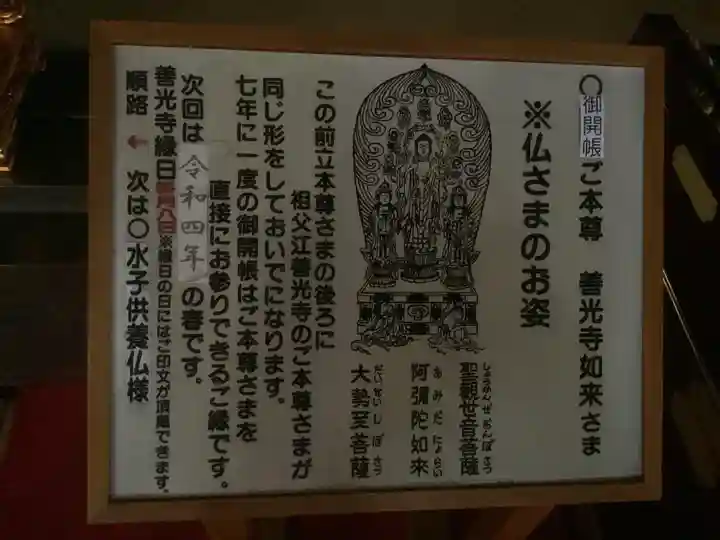 ○御開帳ご本尊 善光寺如来さま
※仏さまのお姿
聖觀世音菩薩
しょうかんぜおんぼさつ
阿彌陀如來
あみだにょらい
大勢至菩薩
だいせいしぼさつ
この前立本尊さまの後ろに
祖父江善光寺のご本尊さまが
同じ形をしておいでになります。
七年に一度の御開帳はご本尊さまを
直接にお参りできるご縁です。
次回は令和四年の春です。
善光寺縁日毎月八日※縁日の日にはご印文が頂戴できます。
順路 ← 次は○水子供養仏様